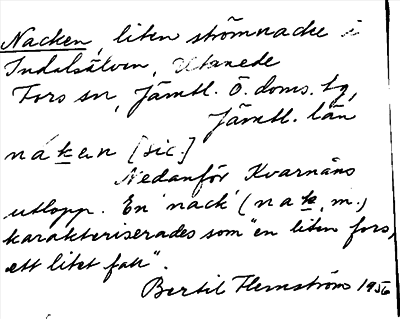 Nacken, liten strömnacke i
Indalsälven, Utanede
Fors sn, Jämtl. Ö. doms. tg,
Jämtl. län
nákan [sic]
Nedanför Kvarnåns
utlopp. En 'nack' (nak, m.)
karakteriserades som "en liten fors,
ett litet fall".
Bertil Flemström 1956